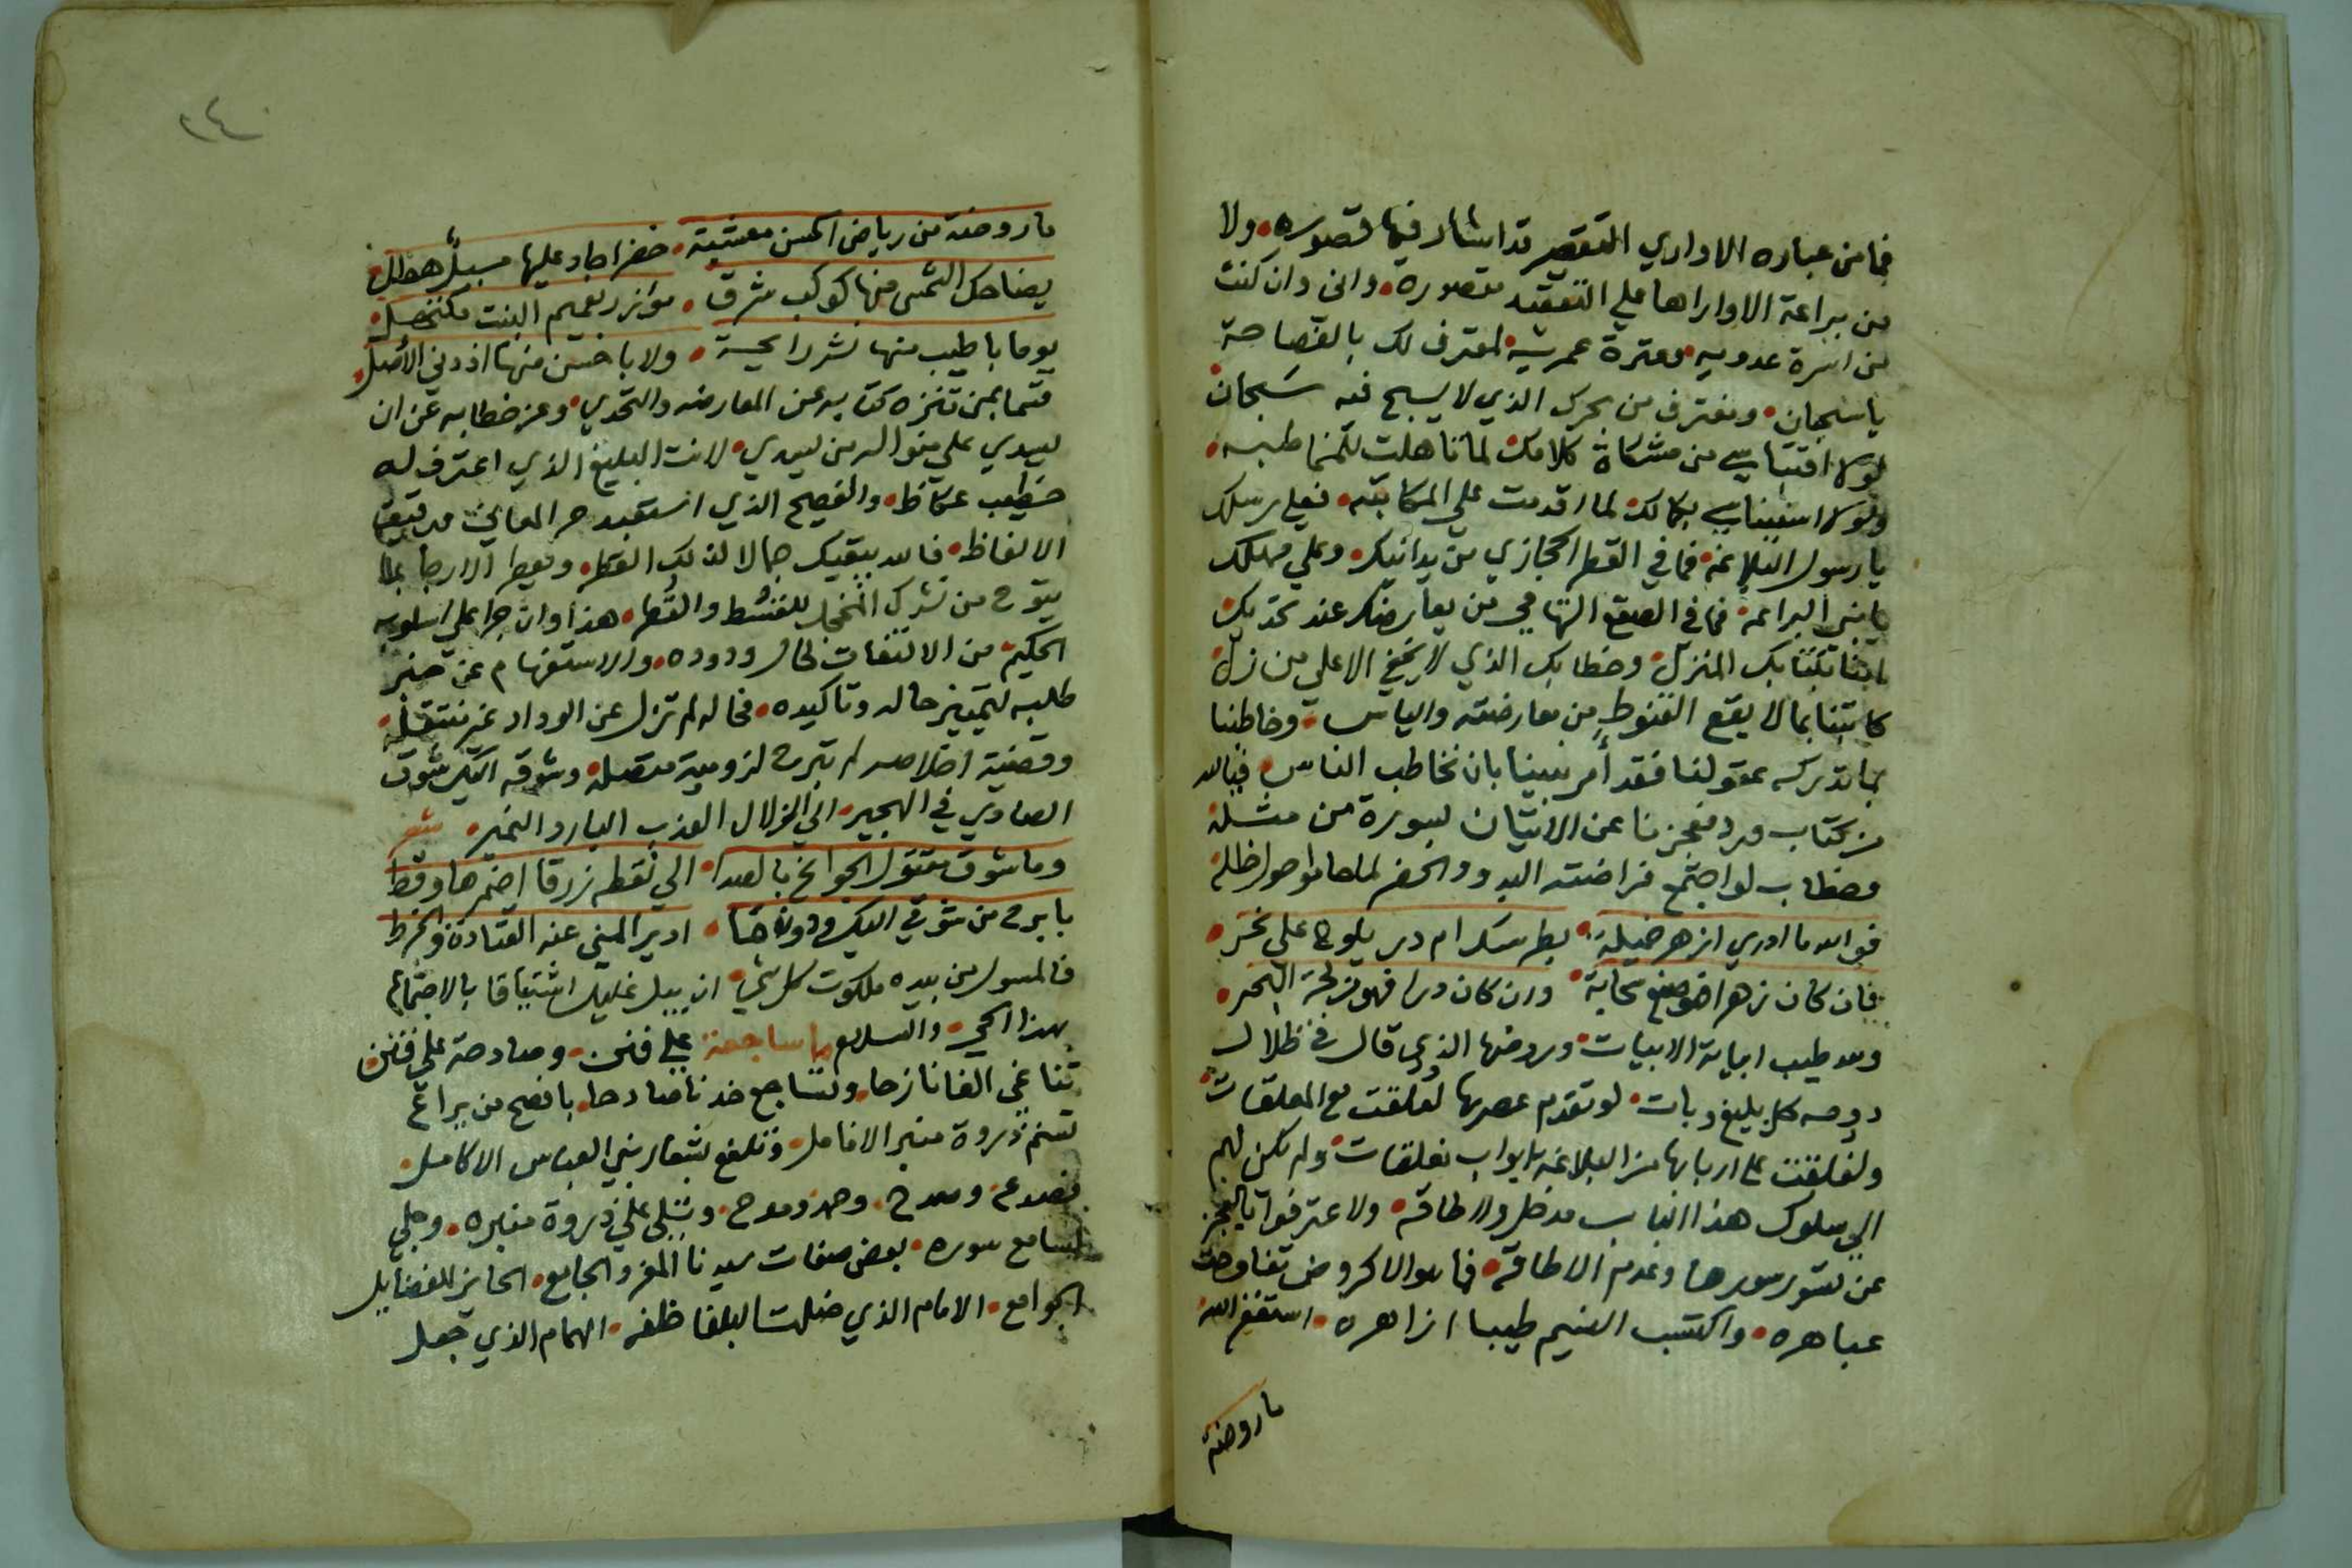 فما من عباره الا واري التقصير قد اشار فيها قصوره ولا
من براعة الا واراها علي التعقيد مقصورة واني وان كنت
من اسرة عدويه وعترة عمريه لمعترف لك بالفصاحة
ياسحبان ومغترف من بحرك الذي لا يسبح فيه سَبحان
لولا اقتباسي من مشكاة كلامك لما تاهلت للمخاطبه
ولولا استيناسي بكمالك لما اقدمت علي المكاتبه فعلي رسلك
يا رسول البلاغه فما في القطر الحجازي من يدانيك وعلي مهلك
يا نبي البراعه فما في الصقع التهامي من يعارضك عند تحديك
بكتابك المنزل وخطابك الذي لا يخفي الا علي من زل
كاتبنا بما لا يقع القنوط من معارضته والياس وخاطبنا
بما تدركه عقولنا فقد أُمر نبينا بان نخاطب الناس فيالله
من كتاب ورد فعجزنا عن الاتيان بسورة من مثله
وخطاب لو اجتمع فراضته البدو والحضر لما حاموا حول ظله
فوالله ما ادري ازهر خميلة بطرسك ام در يلوح علي نحر
فان كان زهرا فهو صنع سحابة وان كان درا فهو من لجة البحر
ولله طيب ابيانة الابيات وروضها الذي قال في ظلال
دوحه كل بليغ وبات لو تقدم عصرها لعلقت مع المعلقات
ولغلقت علي اربابها من البلاغه بابواب مغلقات ولم يكن لهم
الي سلوك هذا الباب مدخل ولا طاقه ولا عترفوا بالعجز
عن تسور سورها وعدم الاطاقه فما هو الا كروض تفاوحت
عباهره واكتسب النسيم طيبا ازاهره استغفر الله
ما روضة
٢٤
ما روضة من رياض الحسن معشبة خضرا جاد عليها مسبلٌ هطل
يضاحك الشمس منها كوكب شرقٌ مؤزر بعميم النبت مكتهل
يوما باطيب منها نشر رايحة ولا باحسن منها اذ دني الأصل
قسما بمن تنزه كتابه عن المعارضه والتحدي وعز خطابه عن ان
يسدي علي منواله من يسدي لانت البليغ الذي اعترف له
خطيب عكاظ والفصيح الذي استعبد حر المعاني برقيق
الالفاظ فالله يبقيك جمالا لذلك القطر ومعطر الارجا بما
يتوح من نشرك المخجل للقُسْط والقُطر هذا وان جرا علي اسلوب
الحكيم من الالتفات لحال ودوده والاستفهام عن خبر
طلبه لتمييز حاله وتاكيده فحاله لم تزل عن الوداد غير منتقله
وقضية اخلاصه لم تبرح لزومية متصله وشوقه اليك شوق
الصادي في الهجير الي الزلال العذب البارد النمير شعر
وما شوق مقتول الجوانح بالصدا الي نقطه زرقا اضمرها وقط
بابرح من شوقي اليك ودونها ادير المني عنه القتادة والخرط
فالمسول من بيده ملكوت كل شي ان يبل غليل اشتياقا بالاجتماع
بهذا الحي والسلام ما ساجعة علي فنن وصادحة علي فنن
تناغي الفا نازحا وتساجع خدنا صادحا بافصح من يراع
تسنم ذروة منبر الانامل وتلفع بشعار بني العباس الاكامل
فصدع وصدح وحمد ومدح وتلي علي ذروة منبره وجلي
لسامع سوره بعض صفات سيدنا المفرد الجامع الحايز للفضايل
الجوامع الامام الذي ضلت البلغا خلفه الهمام الذي جعل